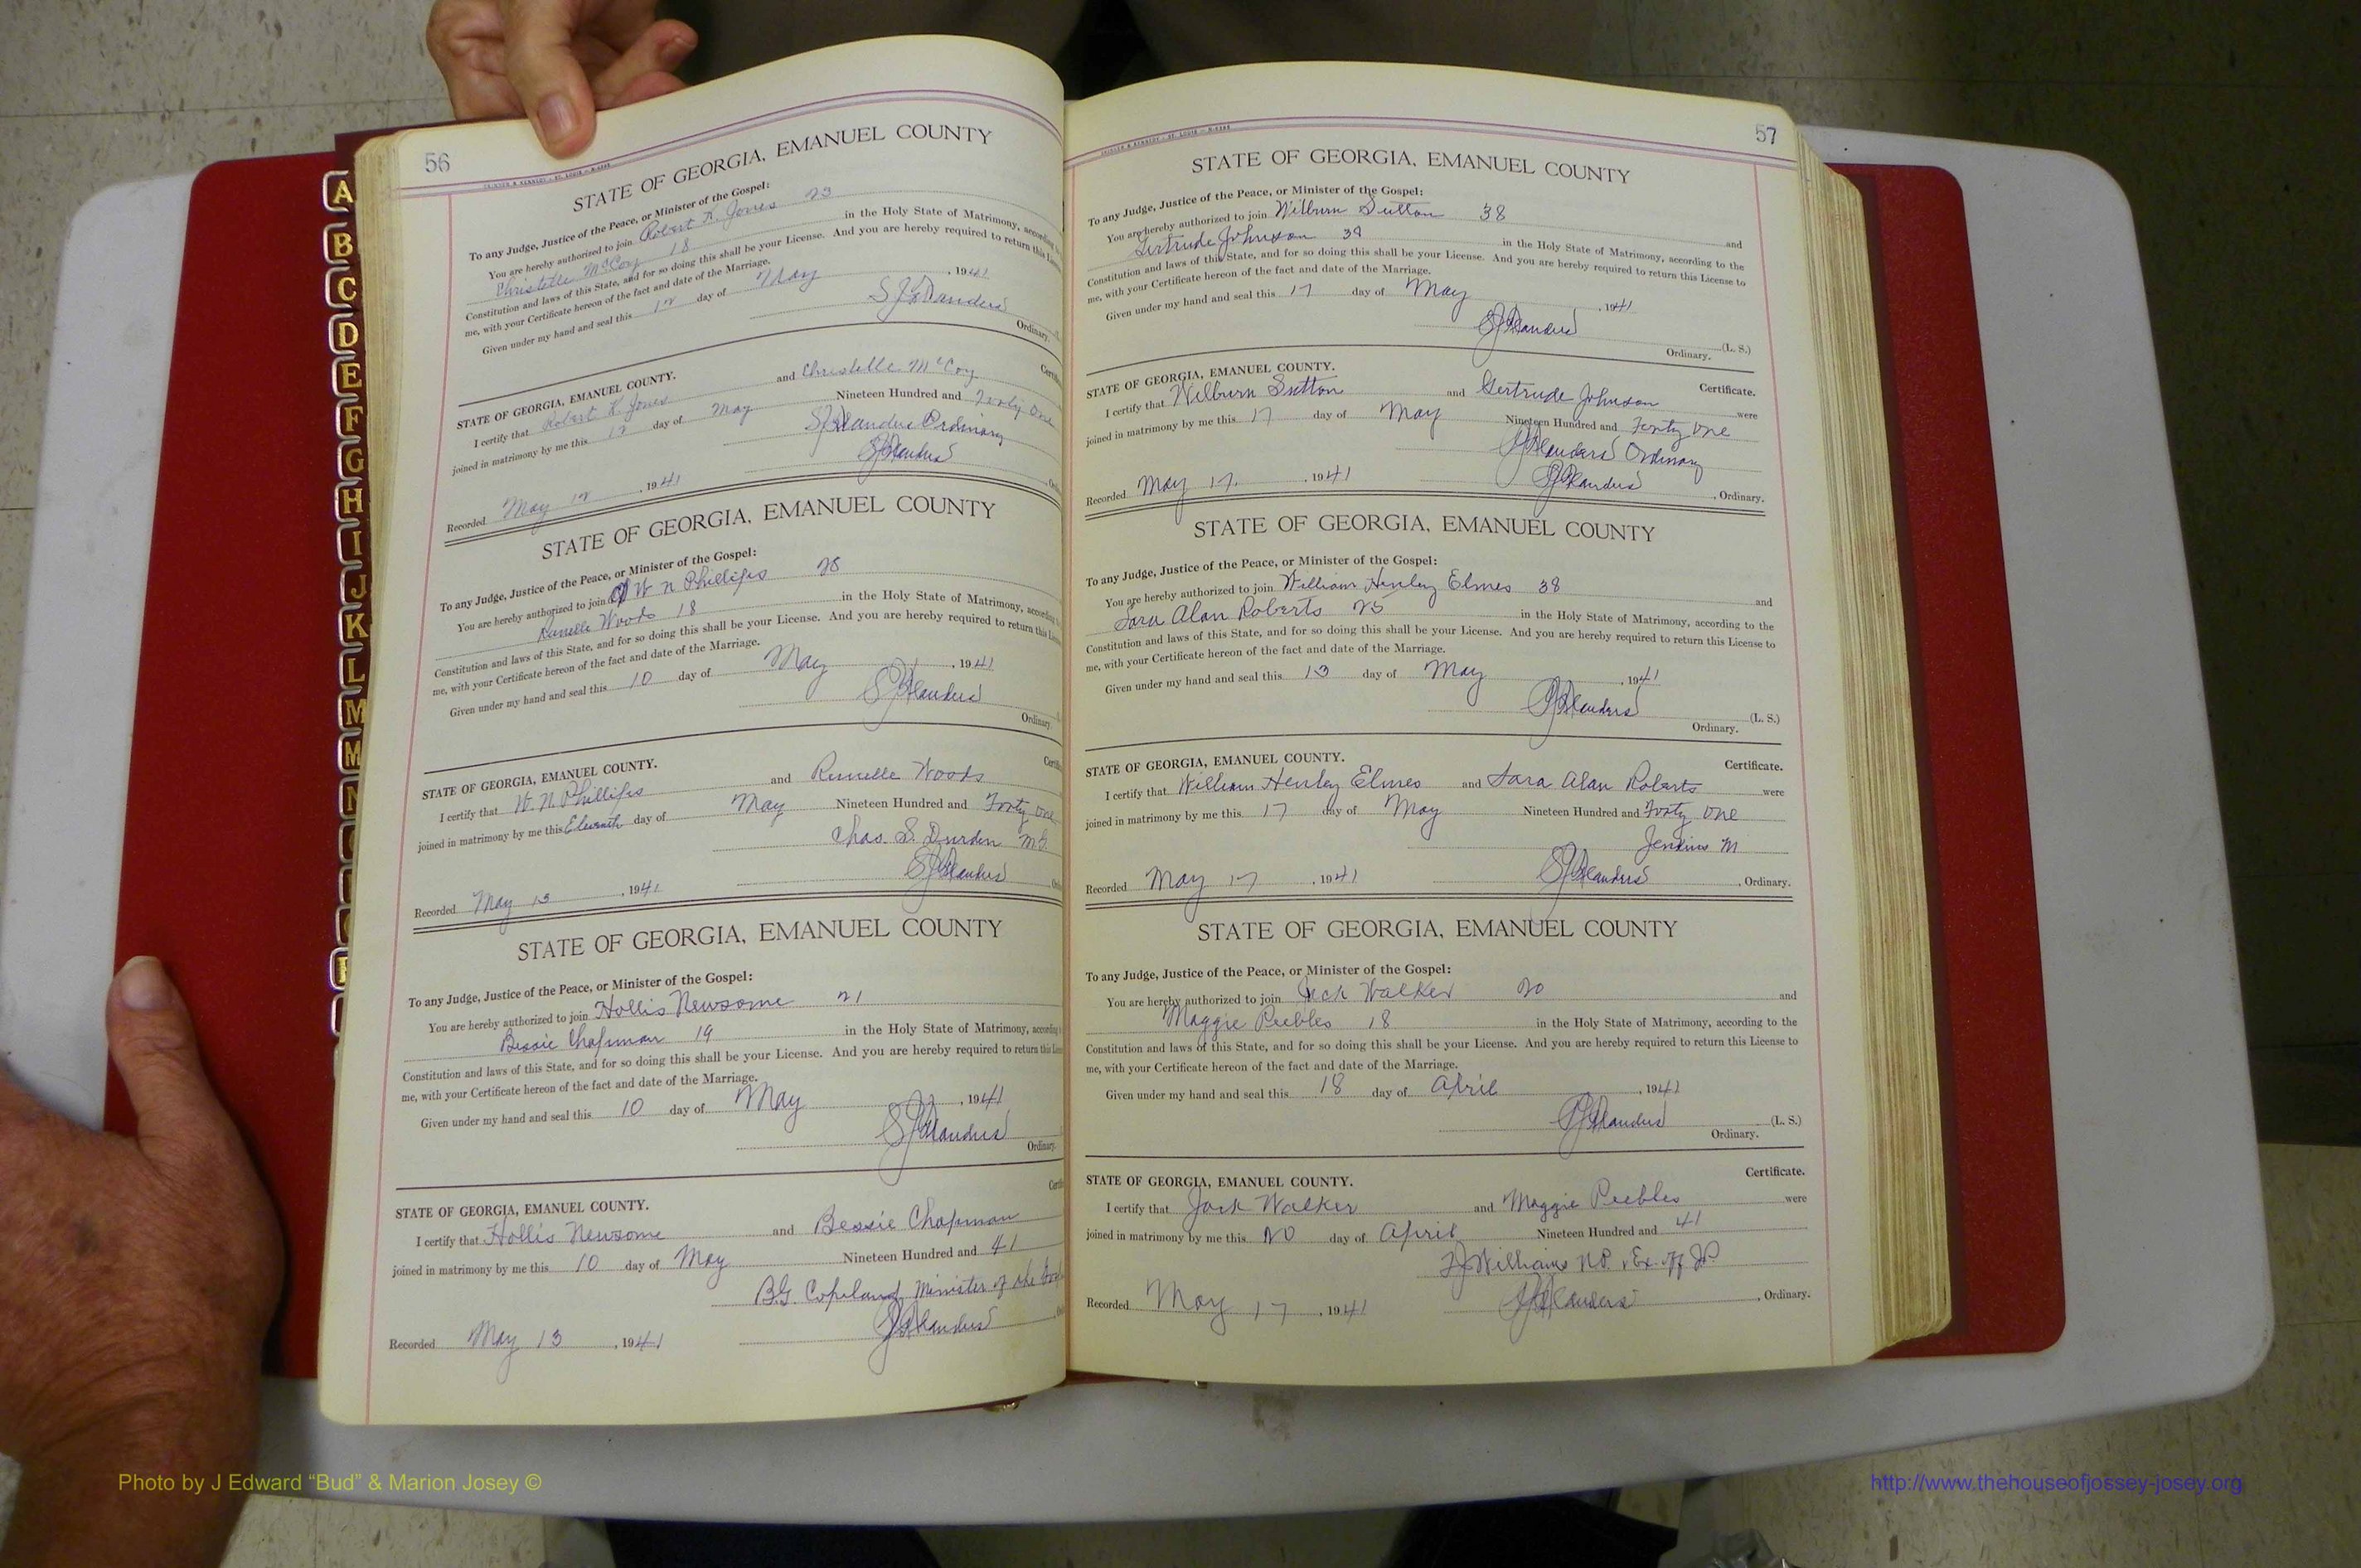 56
STATE OF GEORGIA, EMANUEL COUNTY
To any Judge, Justice of the Peace, or Minister of the Gospel:
You are hereby authorized to join Robert K. Jones 23
Christelle McCoy 18 in the Holy State of Matrimony, according
Constitution and laws of this State, and for so doing this shall be your License. And you are hereby required to return this
me, with your Certificate hereon of the fact and date of the Marriage.
Given under my hand and seal this 12 day of May, 1941
Ordinary.
STATE OF GEORGIA, EMANUEL COUNTY.
I certify that Robert K Jones and Christelle McCoy
joined in matrimony by me this 12 day of May Nineteen Hundred and Forty One
Ordinary
Recorded May 12, 1941
STATE OF GEORGIA, EMANUEL COUNTY
To any Judge, Justice of the Peace, or Minister of the Gospel:
You are hereby authorized to join W N Phillips 28
Woods 18 in the Holy State of Matrimony, according
Constitution and laws of this State, and for so doing this shall be your License. And you are hereby required to return this
me, with your Certificate hereon of the fact and date of the Marriage.
Given under my hand and seal this 10 day of May, 1941
Ordinary.
STATE OF GEORGIA, EMANUEL COUNTY.
I certify that W. N. Phillips and Woods
joined in matrimony by me this Eleventh day of May Nineteen Hundred and Forty One
Chas. S. Durden M.G.
Recorded May 13, 1941
STATE OF GEORGIA, EMANUEL COUNTY
To any Judge, Justice of the Peace, or Minister of the Gospel:
You are hereby authorized to join Hollis Newsome 21
Bessie Chapman 19 in the Holy State of Matrimony, according
Constitution and laws of this State, and for so doing this shall be your License. And you are hereby required to return this
me, with your Certificate hereon of the fact and date of the Marriage.
Given under my hand and seal this 10 day of May, 1941
Ordinary.
STATE OF GEORGIA, EMANUEL COUNTY.
I certify that Hollis Newsome and Bessie Chapman
joined in matrimony by me this 10 day of May Nineteen Hundred and 41
B.G. Copeland, Minister of the
Recorded May 13, 1941
57
STATE OF GEORGIA, EMANUEL COUNTY
To any Judge, Justice of the Peace, or Minister of the Gospel:
You are hereby authorized to join Wilburn Sutton 38 and
Gertrude Johnson in the Holy State of Matrimony, according to the
Constitution and laws of this State, and for so doing this shall be your License. And you are hereby required to return this License to
me, with your Certificate hereon of the fact and date of the Marriage.
Given under my hand and seal this 17 day of May, 1941
(L. S.)
Ordinary.
STATE OF GEORGIA, EMANUEL COUNTY. Certificate.
I certify that Wilburn Sutton and Gertrude Johnson were
joined in matrimony by me this 17 day of May Nineteen Hundred and Forty One
Ordinary
Recorded May 17, 1941, Ordinary.
STATE OF GEORGIA, EMANUEL COUNTY
To any Judge, Justice of the Peace, or Minister of the Gospel:
You are hereby authorized to join William Henley Elmes 38 and
Sara Alan Roberts 25 in the Holy State of Matrimony, according to the
Constitution and laws of this State, and for so doing this shall be your License. And you are hereby required to return this License to
me, with your Certificate hereon of the fact and date of the Marriage.
Given under my hand and seal this 13 day of May, 1941
(L. S.)
Ordinary.
STATE OF GEORGIA, EMANUEL COUNTY. Certificate.
I certify that William Henley Elmes and Sara Alan Roberts were
joined in matrimony by me this 17 day of May Nineteen Hundred and Forty One
Jenkins M
Recorded May 17, 1941, Ordinary.
STATE OF GEORGIA, EMANUEL COUNTY
To any Judge, Justice of the Peace, or Minister of the Gospel:
You are hereby authorized to join Jack Walker 20 and
Maggie Peebles 18 in the Holy State of Matrimony, according to the
Constitution and laws of this State, and for so doing this shall be your License. And you are hereby required to return this License to
me, with your Certificate hereon of the fact and date of the Marriage.
Given under my hand and seal this 18 day of April, 1941
(L. S.)
Ordinary.
STATE OF GEORGIA, EMANUEL COUNTY. Certificate.
I certify that Jack Walker and Maggie Peebles were
joined in matrimony by me this 20 day of April Nineteen Hundred and 41
Williams N.P. Ex. off J.P.
Recorded May 17, 1941, Ordinary.
A
B
C
D
E
F
G
H
I
J
K
L
M
M
N
Photo by J Edward “Bud” & Marion Josey ©
http://www.thehouseofjossey-josey.org